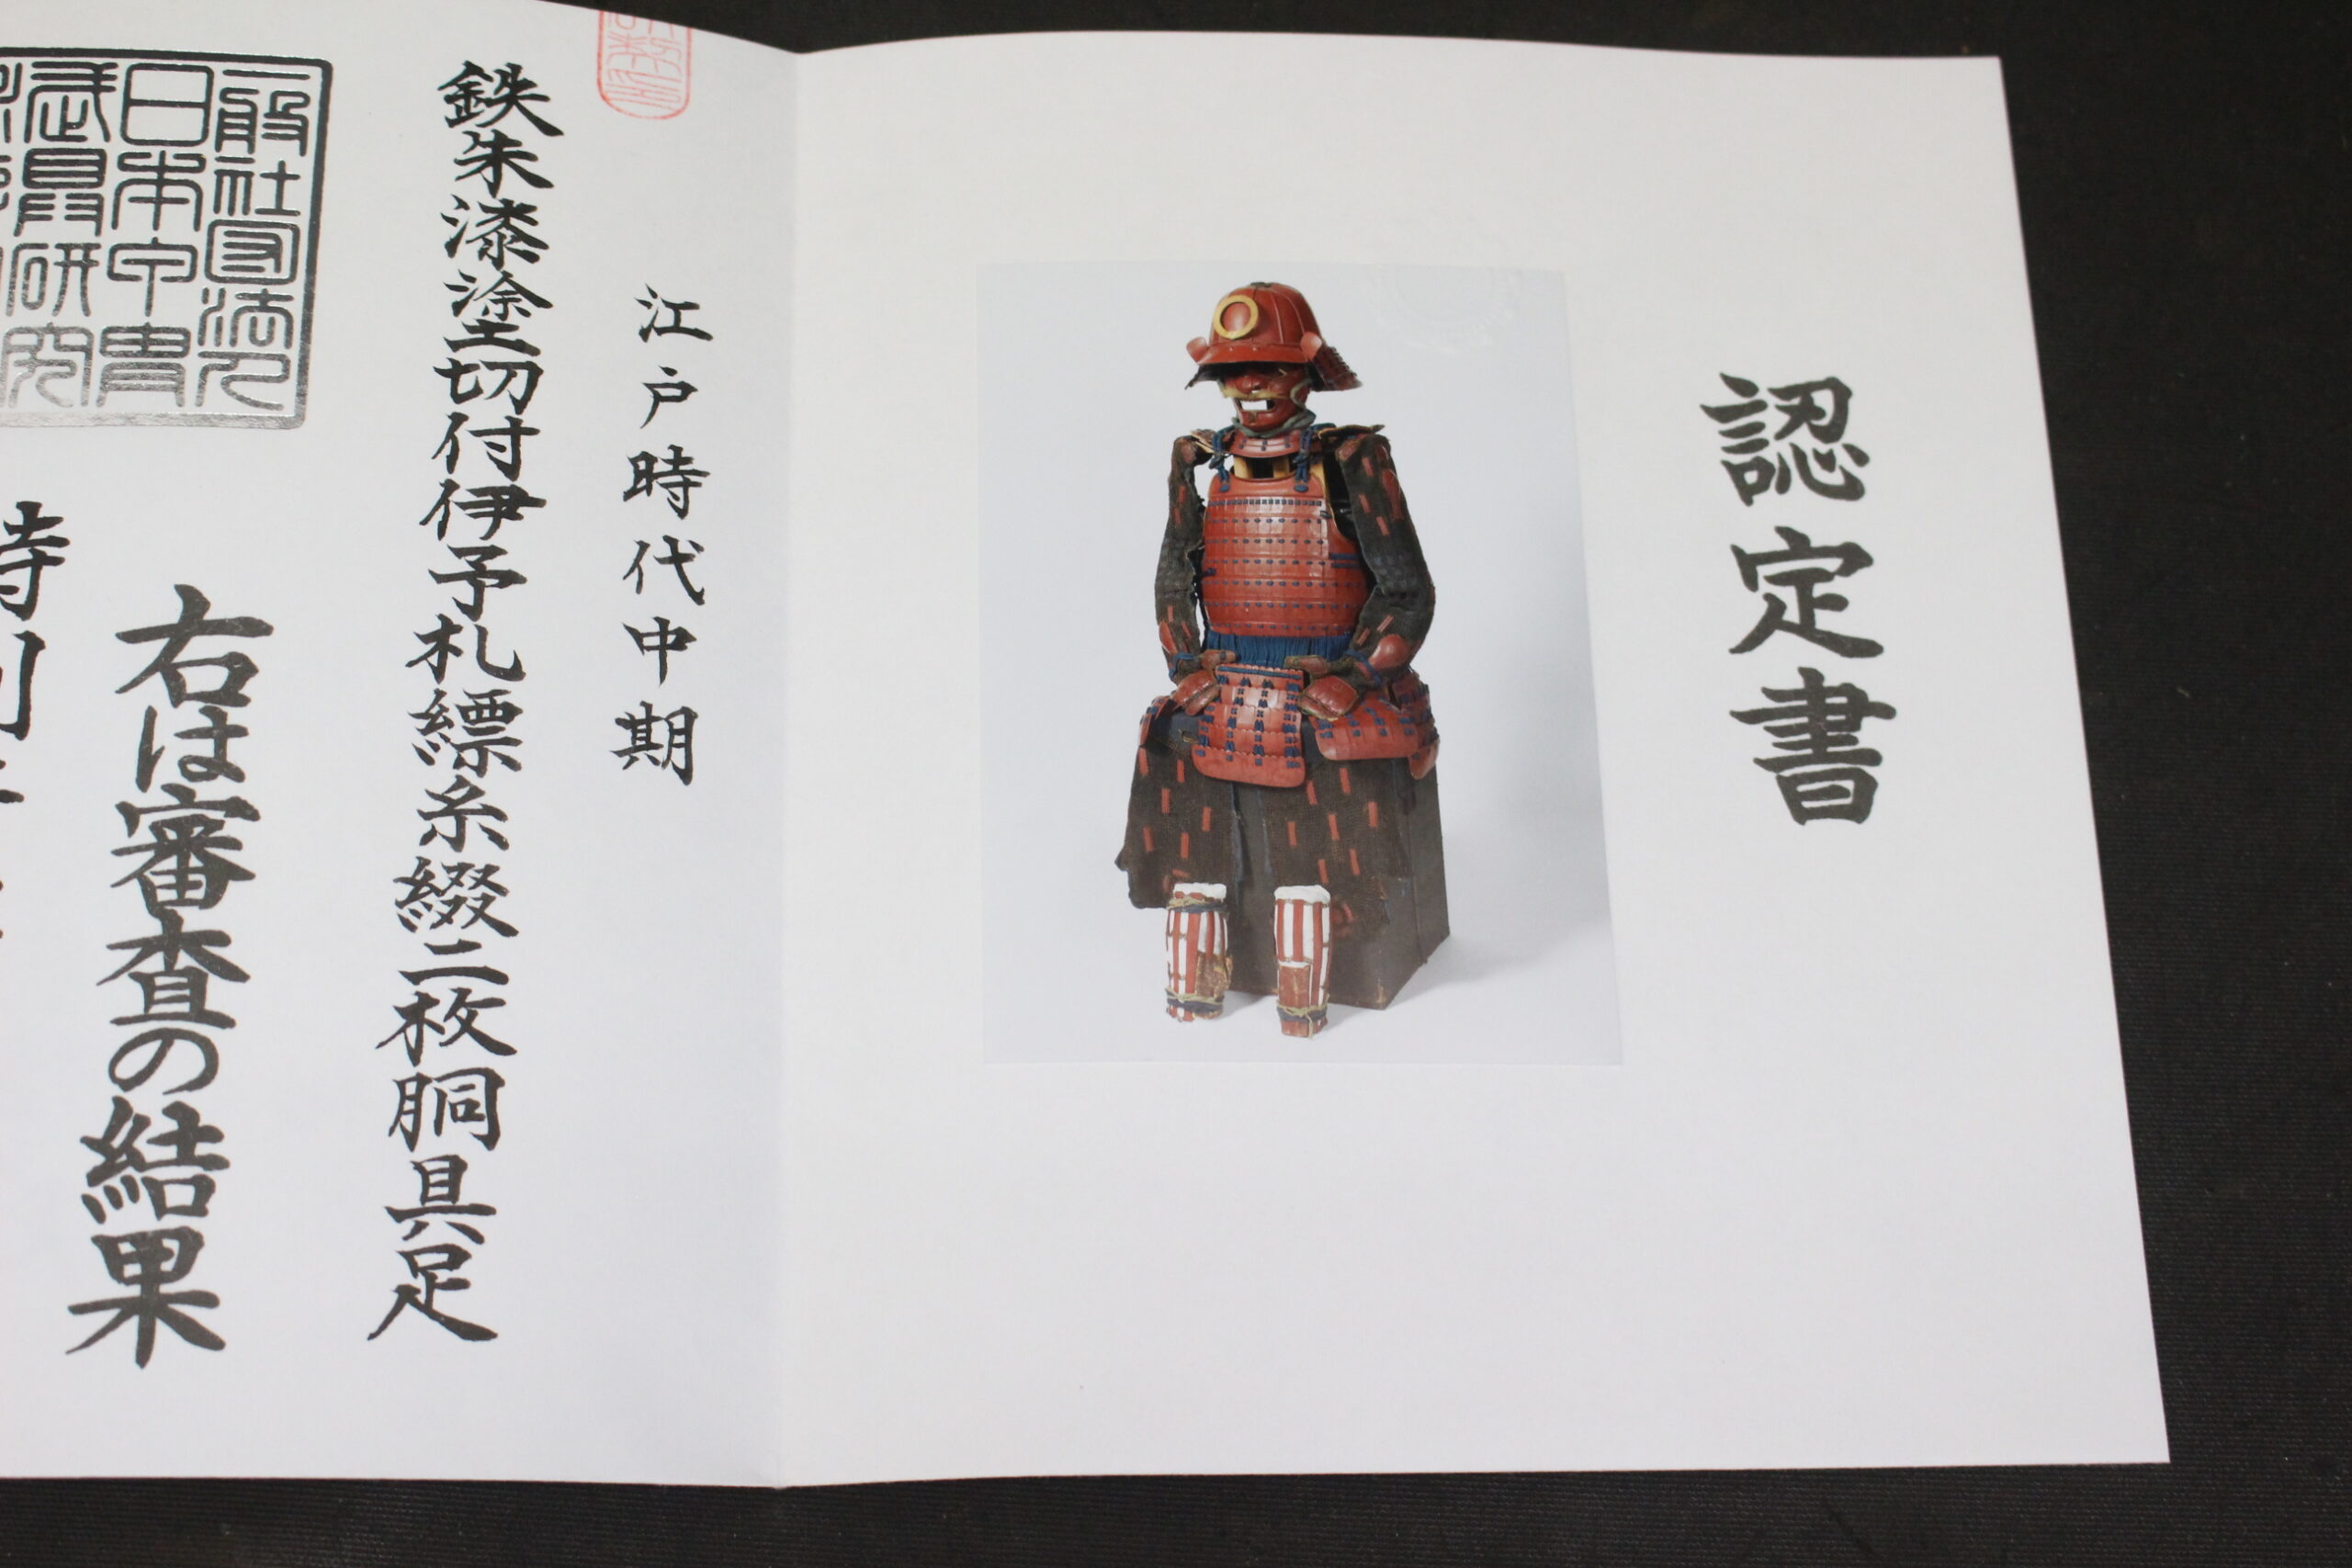 認定書
江戸時代中期
鉄朱漆塗切付伊予札縹糸綴二枚胴具足
右は審査の結果
一般社団法人
日本甲冑
武具研究
特別